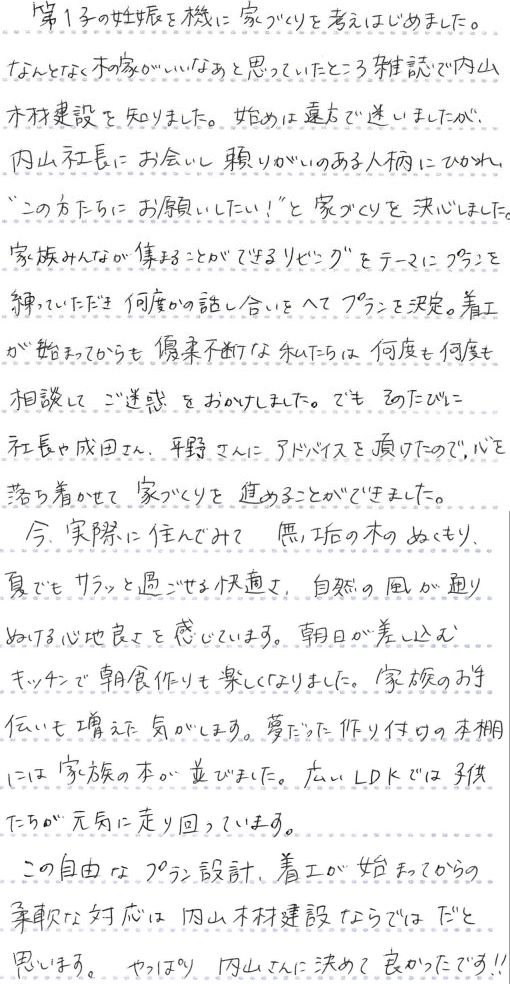 第1子の妊娠を機に 家づくりを考えはじめました。
なんとなく木の家がいいなあと思っていたところ雑誌で内山
木材建設を知りました。始めは遠方で迷いましたが、
内山社長にお会いし 頼りがいのある人柄にひかれ、
"この方たちに お願いしたい!"と 家づくりを決心しました。
家族みんなが集まることができるリビング をテーマにプランを
練っていただき 何度かの話し合いをへてプランを決定。着工
が始まってからも 優柔不断な私たちは 何度も何度も
相談して ご迷惑をおかけしました。でも そのたびに
社長や成田さん、平野さんに アドバイスを頂けたので、心を
落ち着かせて 家づくりを 進めることができました。
今、実際に住んでみて 無垢の木のぬくもり、
夏でもサラッと過ごせる快適さ、自然の風が通り
ぬける心地良さを感じています。朝日が差し込む
キッチンで朝食作りも楽しくなりました。家族のお手
伝いも増えた気がします。夢だった作り付けの本棚
には家族の本が並びました。広いLDKでは子供
たちが元気に走り回っています。
この自由なプラン設計、着工が始まってからの
柔軟な対応は 内山木材建設ならではだと
思います。 やっぱり 内山さんに決めて良かったです!!